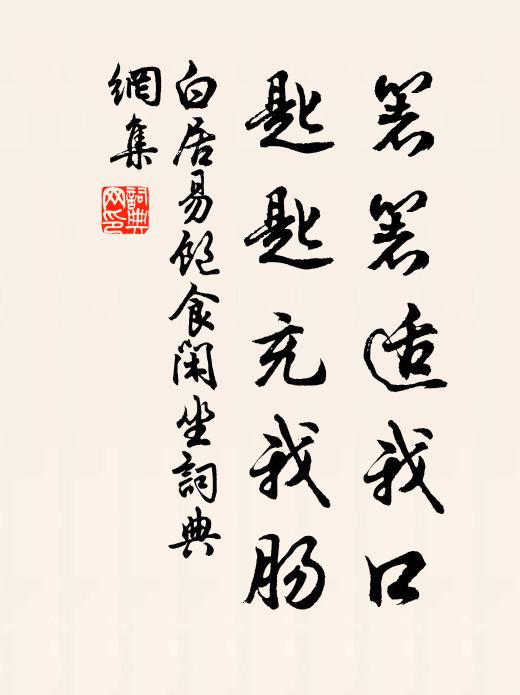 箸箸适我口
匙匙充我肠
白居易飽食闲坐詞典
網集
詞典
网印